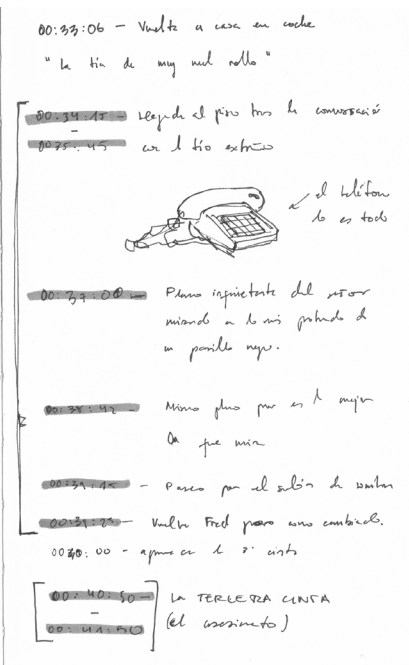 00:33:06 – Vuelta a casa en coche
"La tía da muy mal rollo"
00:34:15 – Llegada al piso tras la conversació
–
00:35:45 con l tío extraño
el teléfono
lo es todo
00:37:00 – Plano inquietante del señor
mirando a lo más profundo d
un pasillo negro.
00:38:42 – Mismo plano pero es l mujer
la que mira
00:39:15 – Paseo por el salón de
00:39:25 – Vuelve Fred pero como cambiado.
00:40:00 – aparece l 2ª cinta
00:40:50 – La TERCERA CINTA
–
00:41:50 (el asesinato)